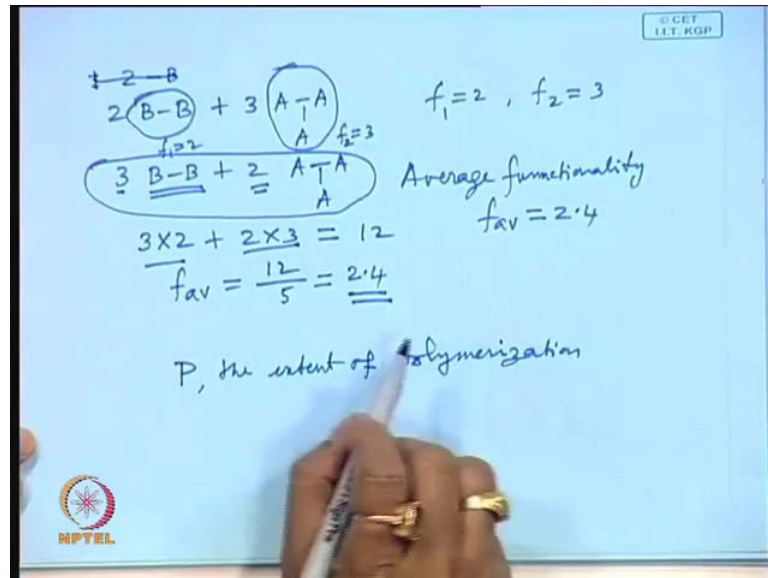 © CET
I.I.T. KGP
2 - B
2 B-B + 3 A-A f₁=2 , f₂=3
A
f₁=2 f₂=3
3 B-B + 2 A-A Average functionality
A
fav = 2.4
3×2 + 2×3 = 12
fav = 12/5 = 2.4
P, the extent of polymerization
NPTEL